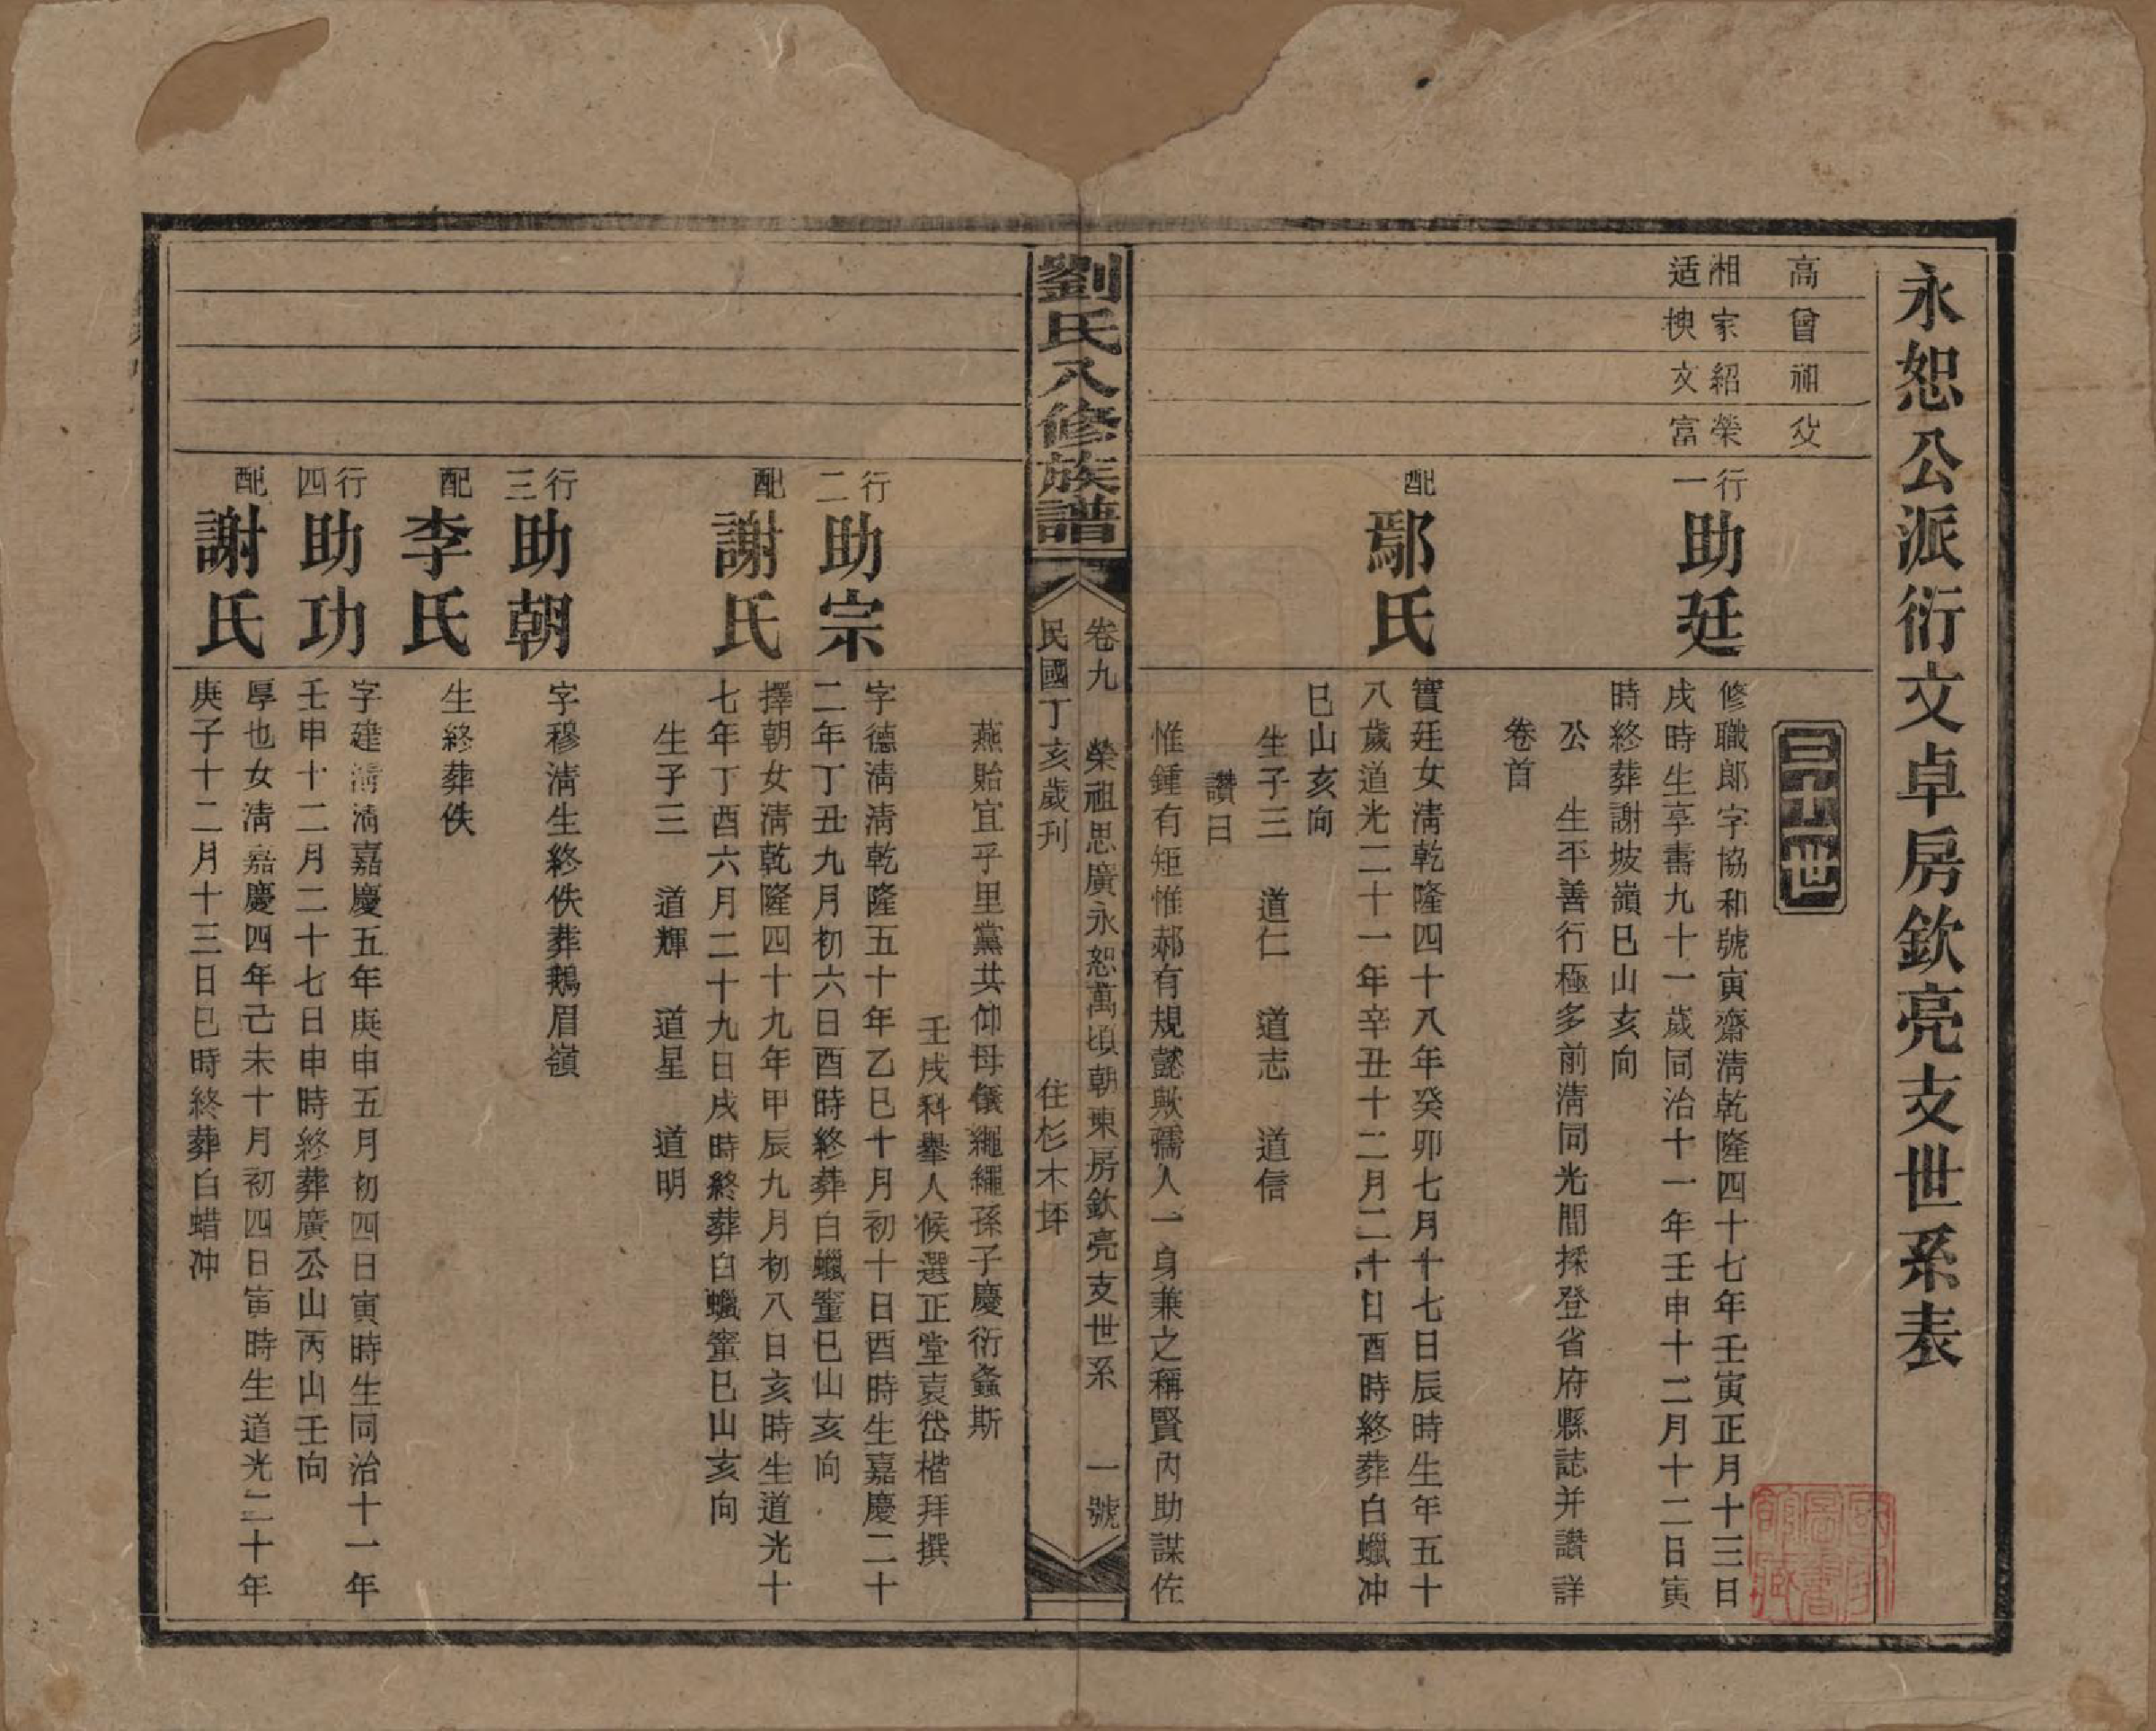 永恕公派衍文卓房欽亮支世系表
高 曾 祖 父
湘 家 紹 榮
适 𣗳 文 富
卅世
行一 助廷
修職郎字協和號寅齋清乾隆四十七年壬寅正月十三日
戌時生享壽九十一歲同治十一年壬申十二月十二日寅
時終葬謝坡嶺巳山亥向
公 生平善行極多前清同光間採登省府縣誌并讚詳
卷首
配 鄢氏
寶廷女清乾隆四十八年癸卯七月十七日辰時生年五十
八歲道光二十一年辛丑十二月二十日酉時終葬白蠟冲
巳山亥向
生子三 道仁 道志 道信
讚曰
惟鍾有矩惟郝有規懿歟孺人一身兼之稱賢內助謀佐
劉氏八修族譜
卷九 榮祖思廣永恕萬頃朝東房欽亮支世系 一號
民國丁亥歲刊 住杉木坪
燕貽宜乎里黨共仰母儀繩繩孫子慶衍螽斯
壬戌科舉人候選正堂袁岱楷拜撰
行二 助宗
字德清清乾隆五十年乙巳十月初十日酉時生嘉慶二十
二年丁丑九月初六日酉時終葬白蠟蜜巳山亥向
配 謝氏
擇朝女清乾隆四十九年甲辰九月初八日亥時生道光十
七年丁酉六月二十九日戌時終葬白蠟蜜巳山亥向
生子三 道輝 道星 道明
行三 助朝
字穆清生終佚葬鵝眉嶺
配 李氏
生終葬佚
行四 助功
字建清清嘉慶五年庚申五月初四日寅時生同治十一年
壬申十二月二十七日申時終葬廣公山丙山壬向
配 謝氏
厚也女清嘉慶四年己未十月初四日寅時生道光二十年
庚子十二月十三日巳時終葬白蜡冲